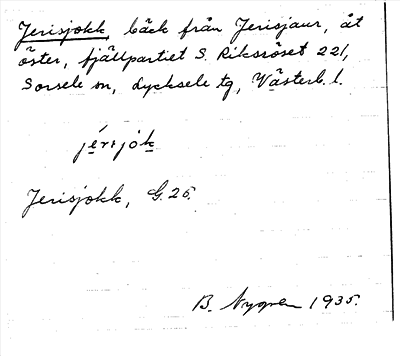 Jerisjokk, bäck från Jerisjaur, åt
öster, fjällpartiet S. Riksröset 221,
Sorsele sn, Lycksele tg, Västerb. l.
Jerisjokk, G. 25.
B. Nygren 1935.